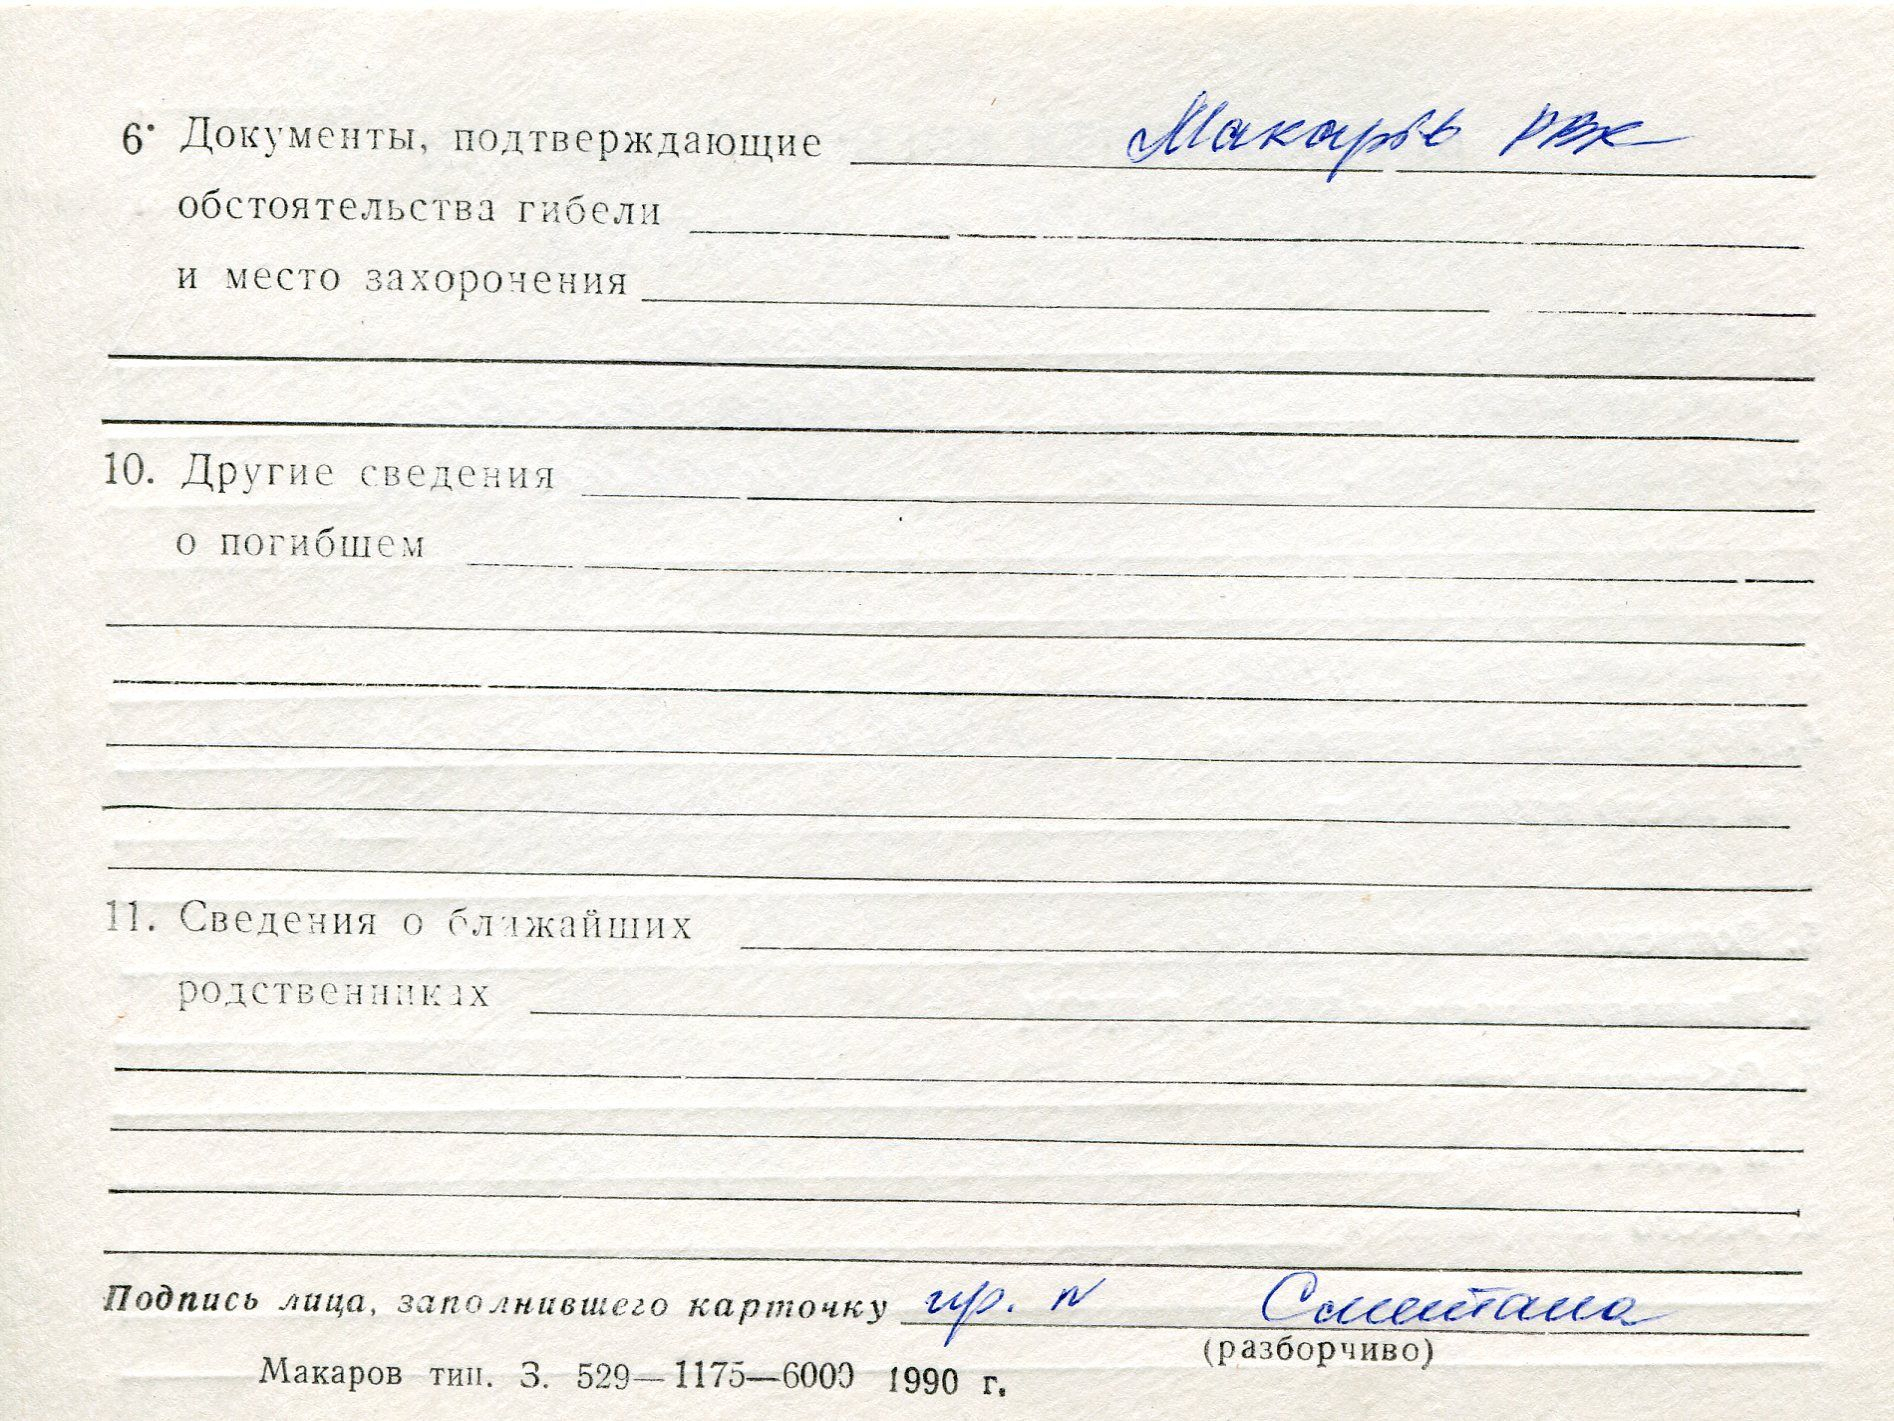 6. Документы, подтверждающие Макарів РВК
обстоятельства гибели
и место захоронения
10. Другие сведения
о погибшем
11. Сведения о ближайших
родственниках
Подпись лица, заполнившего карточку пр. п Сметана
(разборчиво)
Макаров тип. З. 529—1175—6000 1990 г.